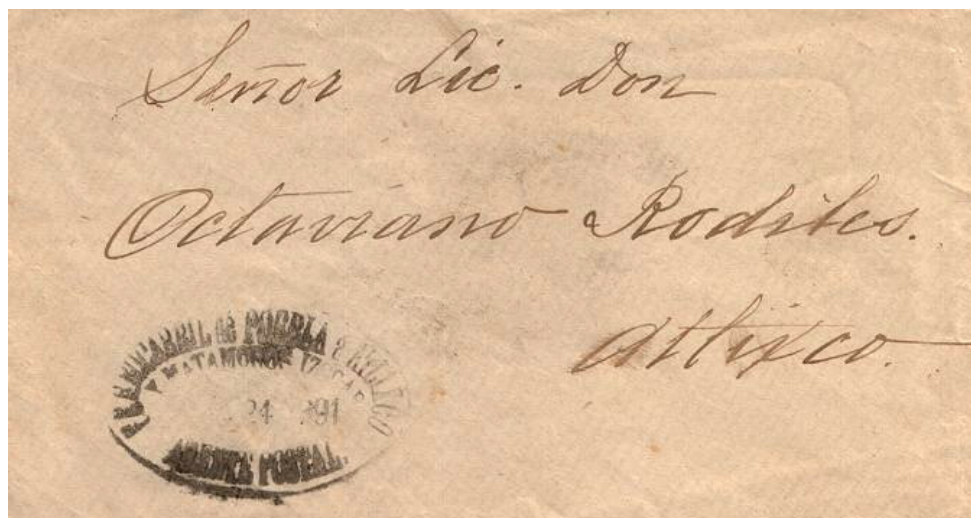 Señor Lic. Don
Octaviano Rodiles.
Atlixco.
FERROCARRIL DE PUEBLA Á ATLIXCO
Y MATAMOROS IZUCAR
24 891
AGENTE POSTAL.